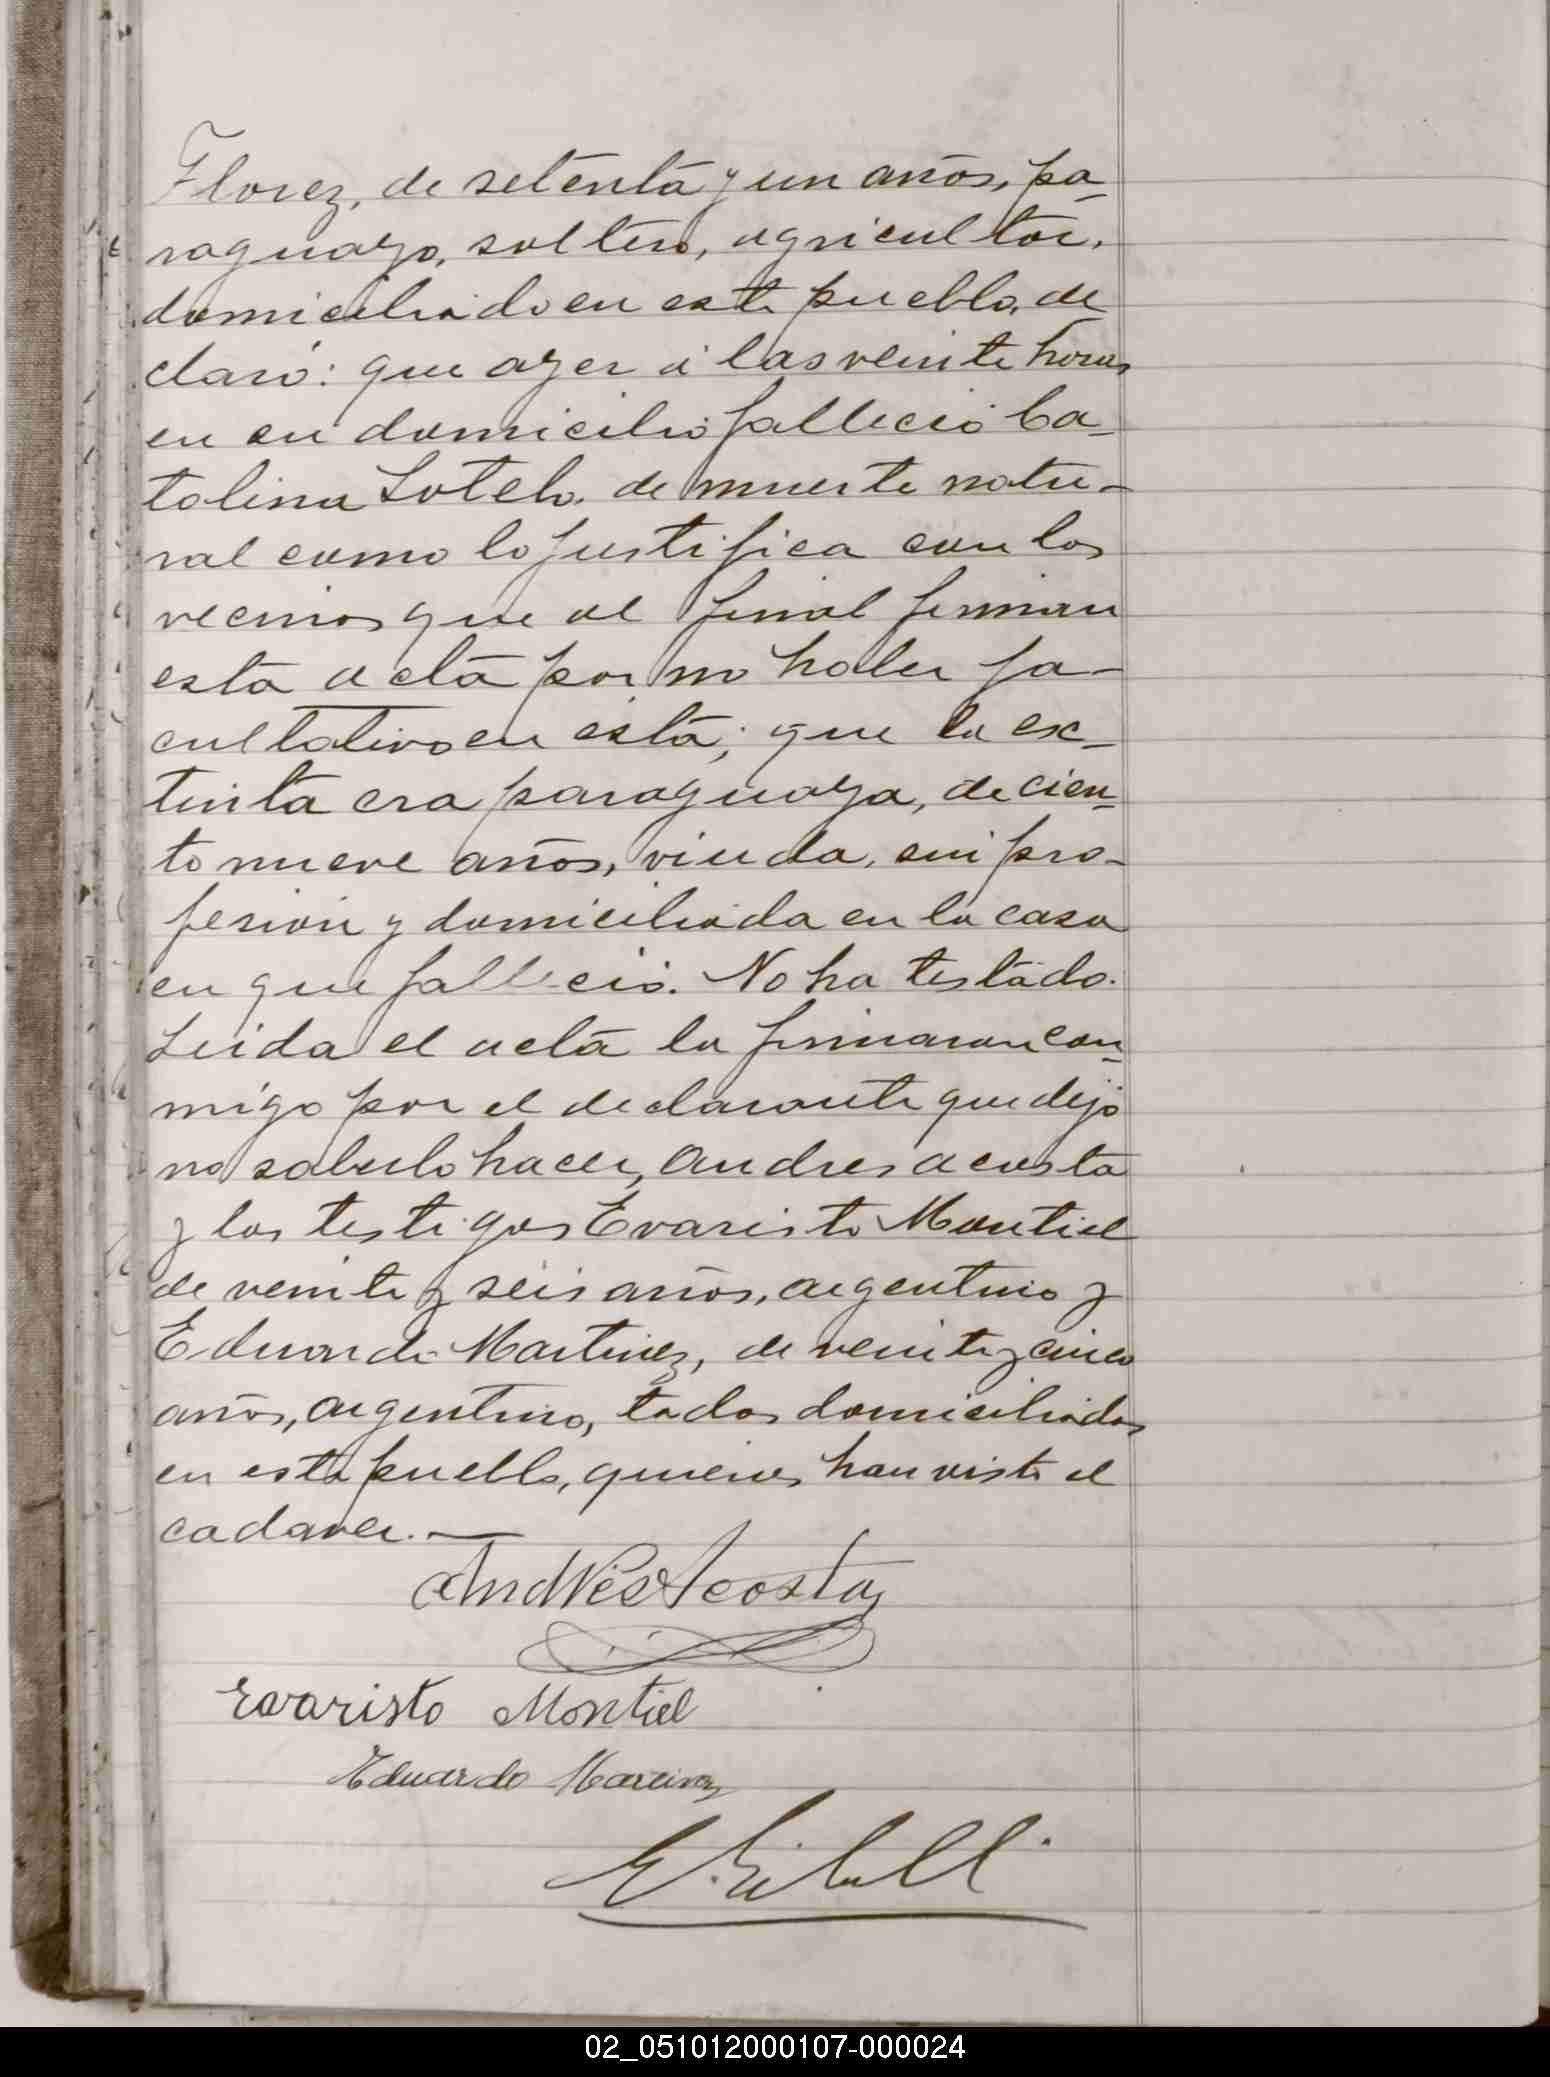 Florez, de setenta y un años, pa-
raguayo, soltero, agricultor,
domiciliado en este pueblo, de
claró: que ayer á las veinte horas
en su domicilio falleció Ca-
talina Sotelo, de muerte natu-
ral como lo justifica con los
vecinos que al final firman
esta acta por no haber fa-
cultativo en esta; que la ex-
tinta era paraguaya, de cien-
to nueve años, viuda, sin pro-
fesion y domiciliada en la casa
en que falleció. No ha testado.
Leida el acta la firmaron con-
migo por el declarante que dijo
no saberlo hacer, Andres Acosta
y los testigos Evaristo Montiel
de veinte y seis años, argentino y
Eduardo Martinez, de veinte y cinco
años, argentino, todos domiciliados
en este pueblo, quienes han visto el
cadaver.—
Andrés Acosta
Evaristo Montiel
Eduardo Martinez
02_051012000107-000024